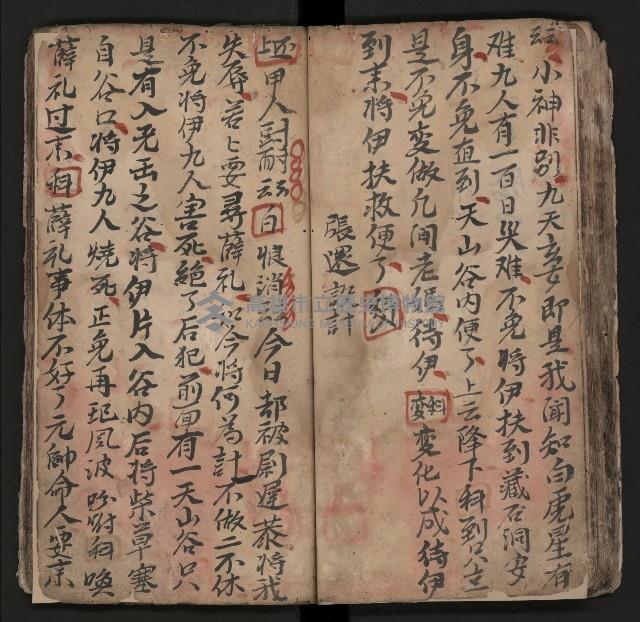 云小神非別九天玄女即是我聞知白虎星有
难九人有一百日災难不免将伊扶到藏石洞安
身不免直到天山谷内便了上云降下科到只
是不免变做凡间老媽待伊变科变化以成待伊
到来将伊扶救便了
張还設計
甲人討耐云白恨消今日都被尉遲恭将我
失辱若上要尋薛礼如今将何為計不做二不休
不免将伊九人害死絶了后犯前面有一天山谷只
是有入无出之谷将伊片入谷内后将柴草塞
自谷口将伊九人燒死正免再犯風波吩咐科喚
薛礼过来科薛礼事体不好了元帥命人要京
高雄市立歷史博物館
KAOHSIUNG MUSEUM OF HISTORY